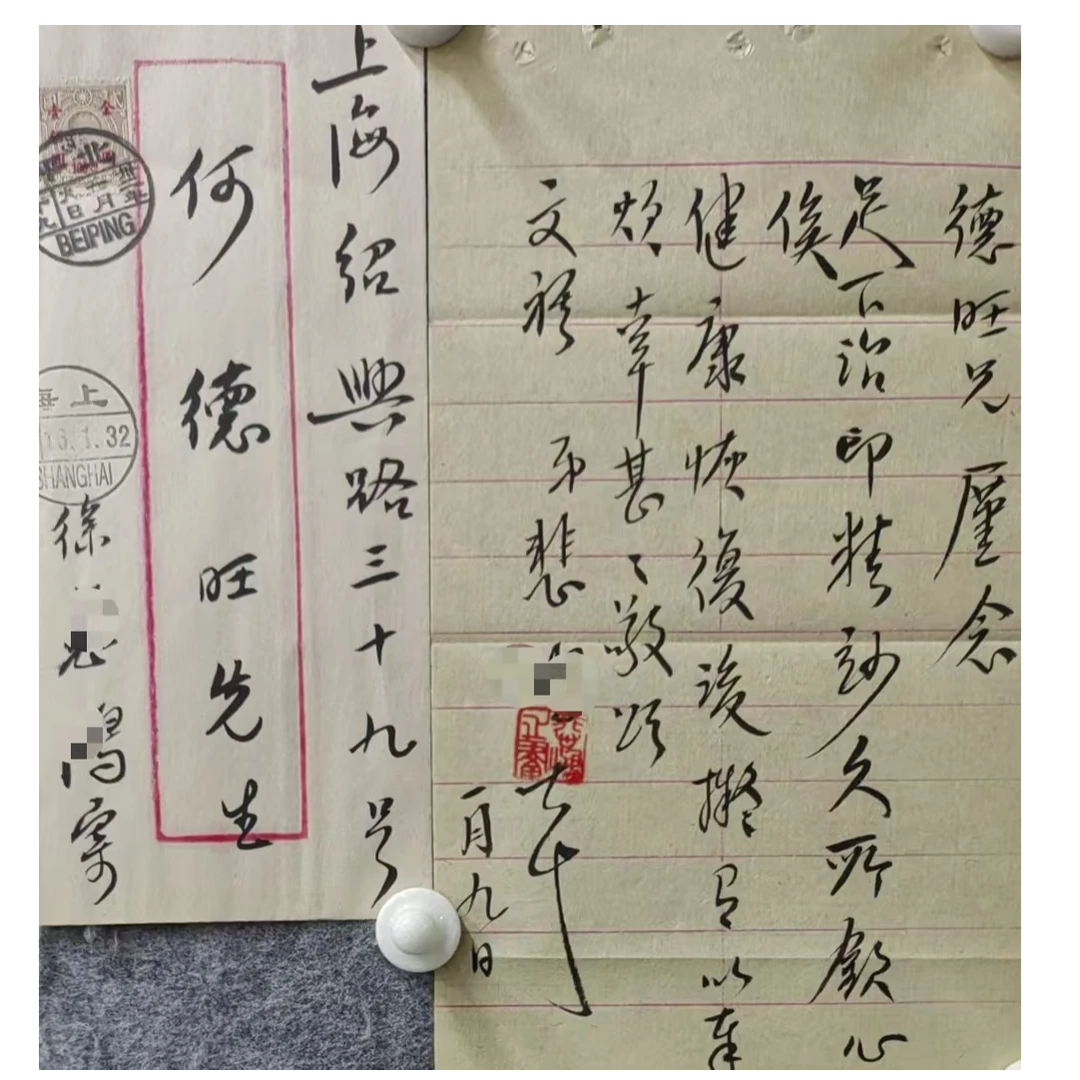 德旺兄 厪念
足下治印精妙久所欽心
俟
健康恢復後擬有以奉
煩幸甚〻敬頌
文祺 弟悲
一月九日
上海紹興路三十九号
何德旺先生
徐 寄
BEIPING
上海
16.1.32
SHANGHAI